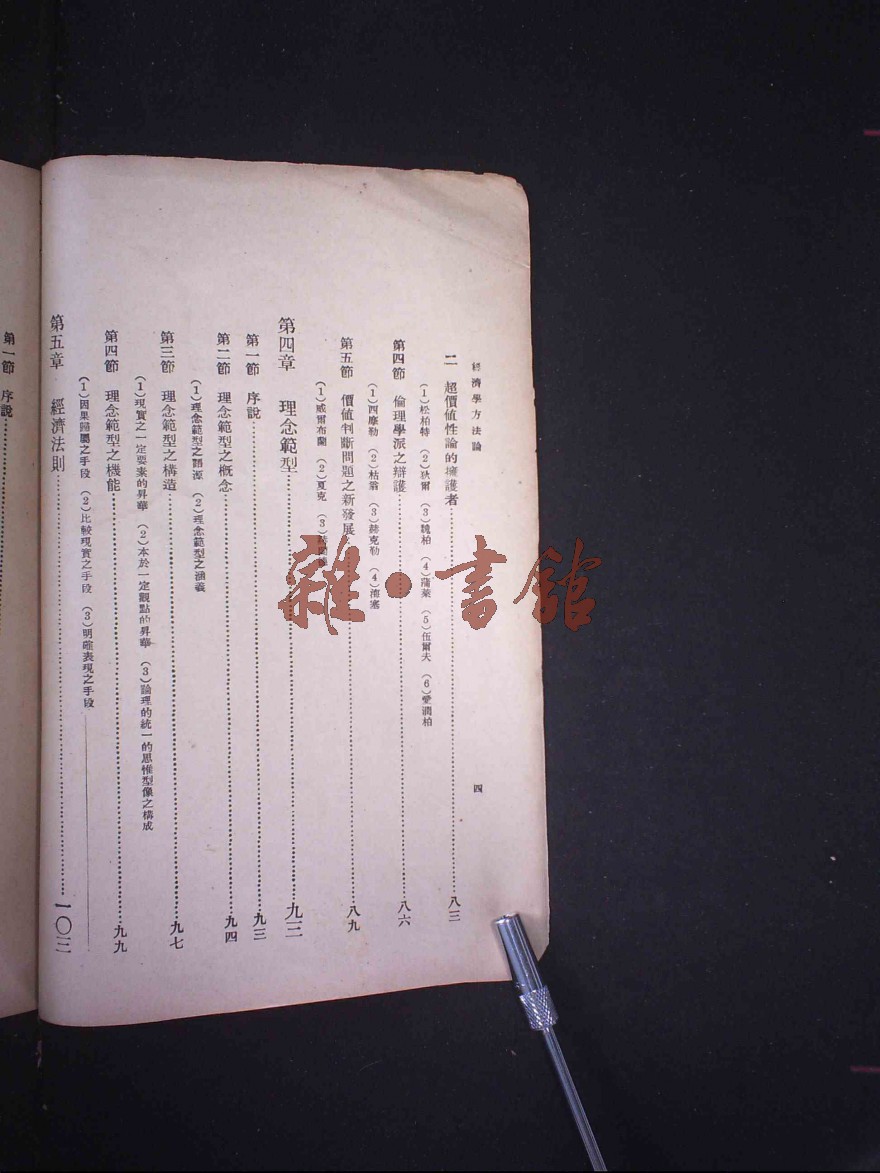 經濟學方法論
四
二 超價値性論的擁護者……八三
(1)松柏特 (2)狄爾 (3)魏柏 (4)蒲萊 (5)伍爾夫 (6)愛濶柏
第四節 倫理學派之辯護……八六
(1)西摩勒 (2)枯翁 (3)赫克勒 (4)浦塞
第五節 價値判斷問題之新發展……八九
(1)威爾布蘭 (2)夏克 (3)
第四章 理念範型……九三
第一節 序說……九三
第二節 理念範型之概念……九四
(1)理念範型之語源 (2)理念範型之涵義
第三節 理念範型之構造……九七
(1)現實之一定要素的昇華 (2)本於一定觀點的昇華 (3)論理的統一的思惟型像之構成
第四節 理念範型之機能……九九
(1)因果歸屬之手段 (2)比較現實之手段 (3)明確表現之手段
第五章 經濟法則……一〇三
第一節 序說……
雜·書館